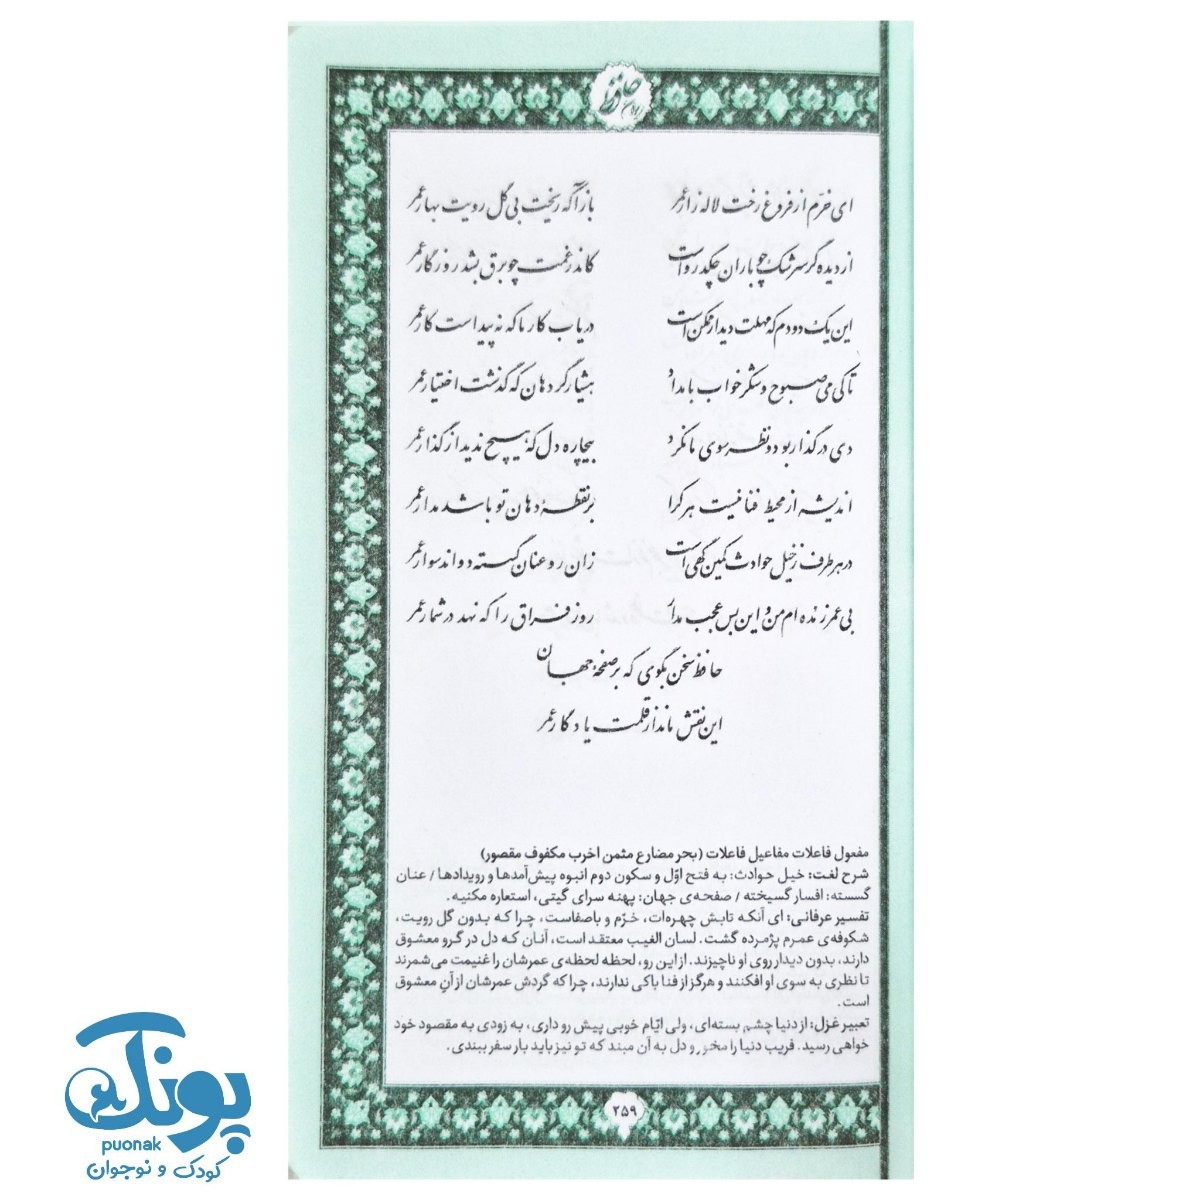 دیوان حافظ
ای خرّم از فروغ رخت لاله زار عمر
بازآ که ریخت بی گل رویت بهار عمر
از دیده گر سرشک چو باران چکد رواست
کاندر غمت چو برق بشد روزگار عمر
این یک دو دم که مهلت دیدار ممکن است
دریاب کار ما که نه پیداست کار عمر
تا کی می صبوح و شکر خواب بامداد
هشیار گرد هان که گذشت اختیار عمر
دی در گذار بود و نظر سوی ما نکرد
بیچاره دل که هیچ ندید از گذار عمر
اندیشه از محیط فنا نیست هر که را
بر نقطهٔ دهان تو باشد مدار عمر
در هر طرف ز خیل حوادث کمین گهی است
زان رو عنان گسسته دواند سوار عمر
بی عمر زنده ام من و این بس عجب مدار
روز فراق را که نهد در شمار عمر
حافظ سخن بگوی که بر صفحهٔ جهان
این نقش ماند از قلمت یادگار عمر
مفعول فاعلات مفاعیل فاعلات (بحر مضارع مثمن اخرب مکفوف مقصور)
شرح لغت: خیل حوادث: به فتح اوّل و سکون دوم انبوه پیش‌آمدها و رویدادها / عنان
گسسته: افسار گسیخته / صفحه‌ی جهان: پهنه سرای گیتی، استعاره مکنیه.
تفسیر عرفانی: ای آنکه تابش چهره‌ات، خرّم و باصفاست، چرا که بدون گل رویت،
شکوفه‌ی عمرم پژمرده گشت. لسان الغیب معتقد است، آنان که دل در گرو معشوق
دارند، بدون دیدار روی او ناچیزند. از این رو، لحظه لحظه‌ی عمرشان را غنیمت می‌شمرند
تا نظری به سوی او افکنند و هرگز از فنا باکی ندارند، چرا که گردش عمرشان از آنِ معشوق
است.
تعبیر غزل: از دنیا چشم بسته‌ای، ولی ایّام خوبی پیش رو داری، به زودی به مقصود خود
خواهی رسید. فریب دنیا را مخور و دل به آن مبند که تو نیز باید بار سفر ببندی.
۲۵۹
پونک
puonak
کودک و نوجوان